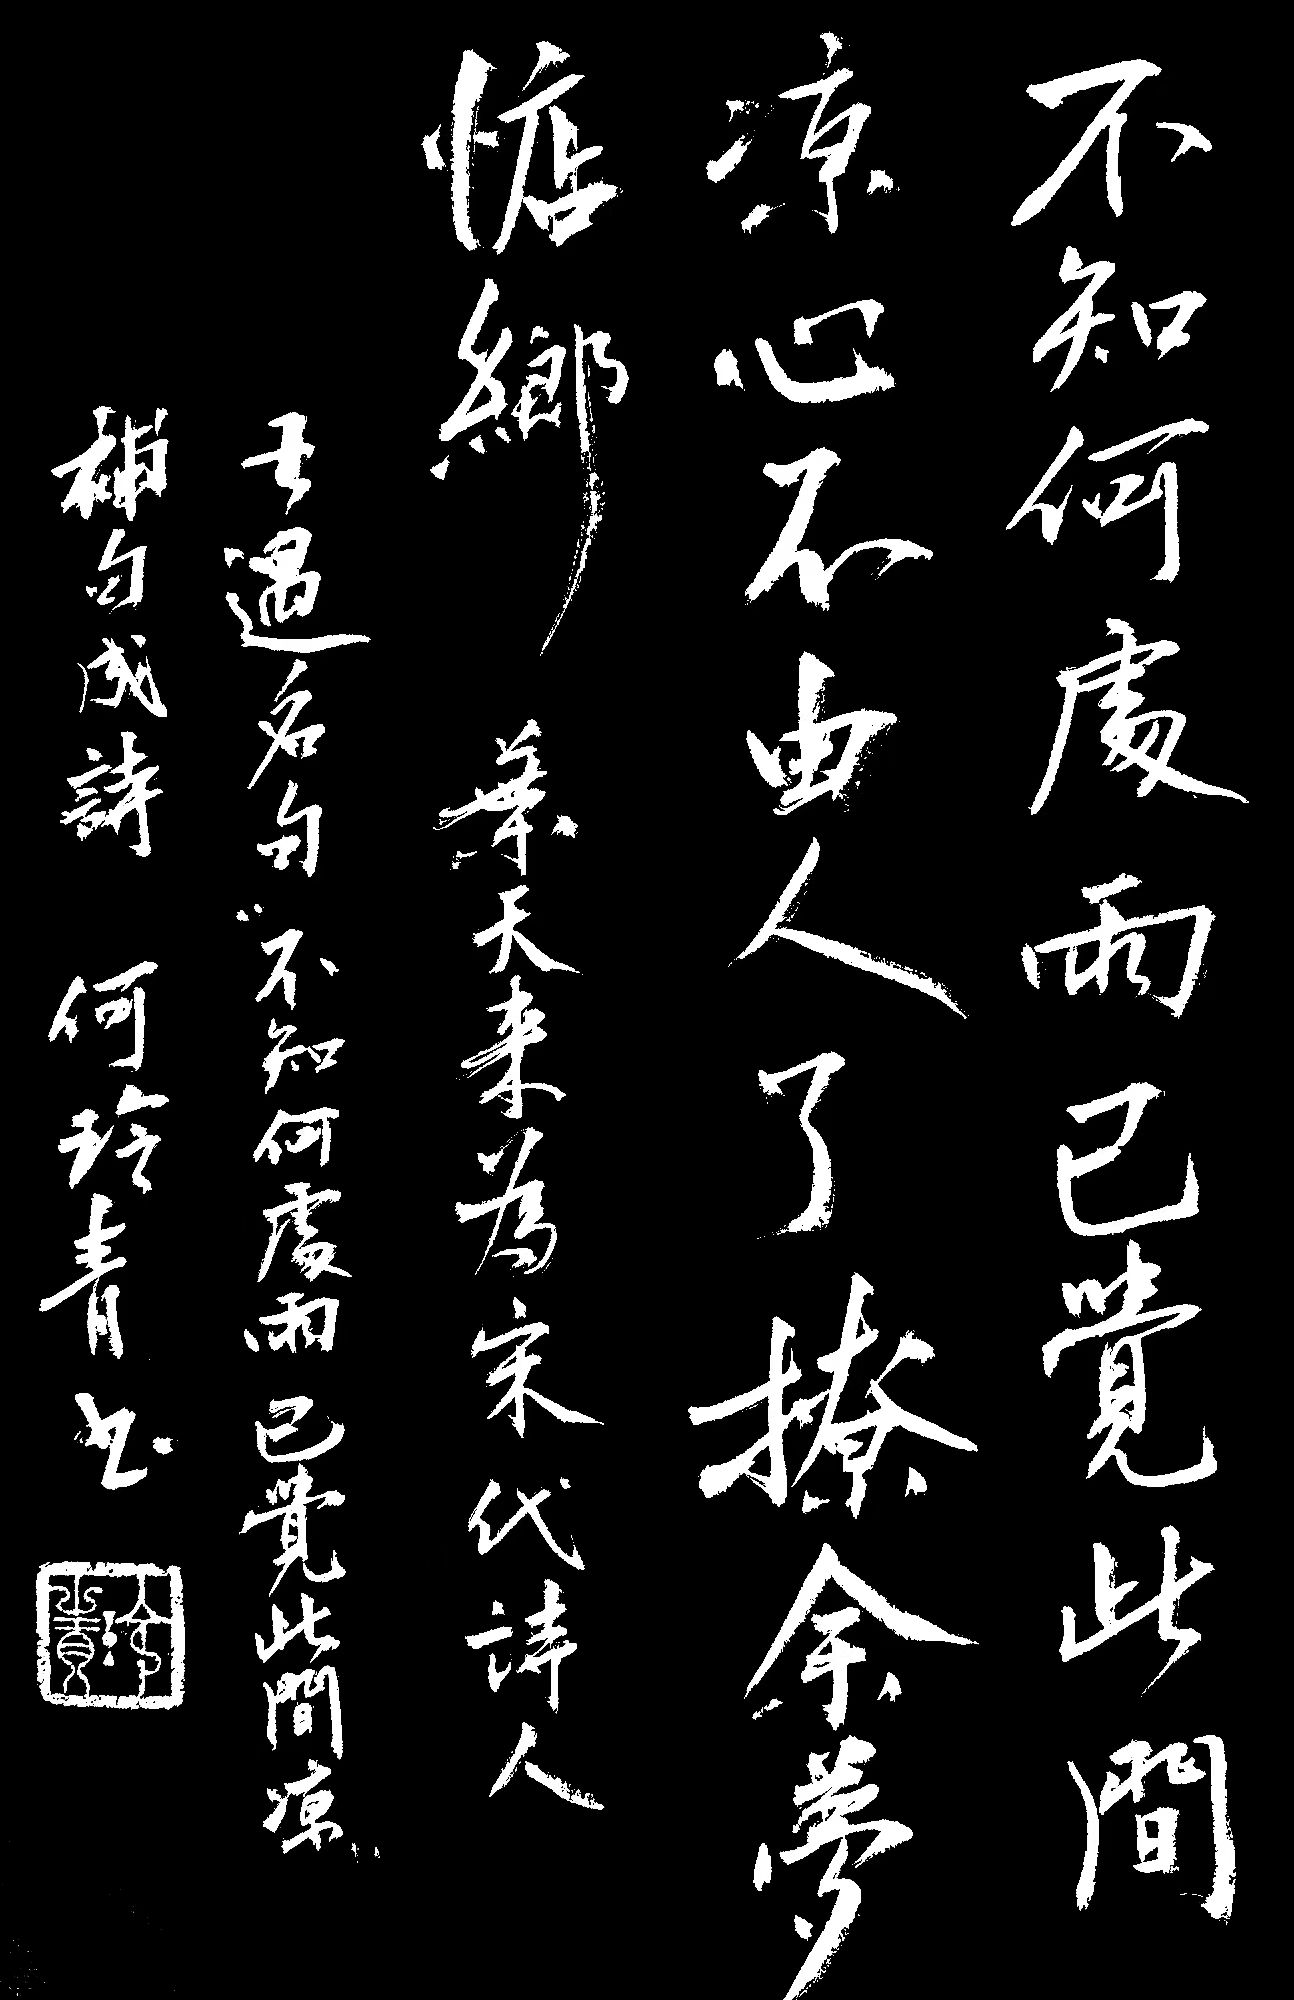 不知何處雨已覺此間
涼心不由人了撩余夢
惦鄉 葉天来為宋代詩人
吾遇名句“不知何處雨已覺此間凉”
補句成詩 何玲青书